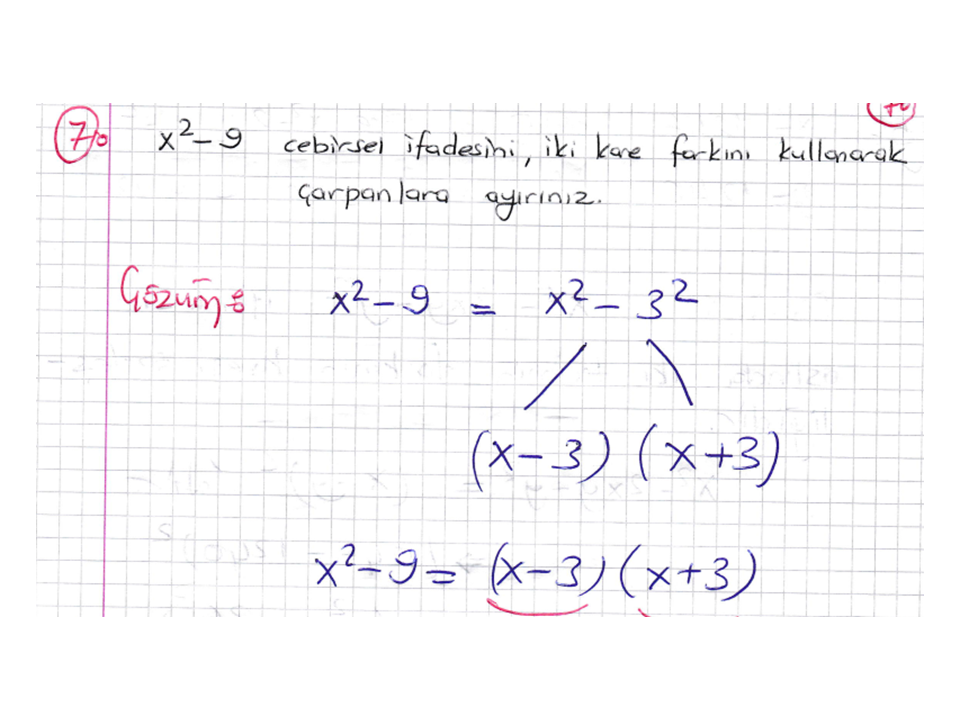 x² - 9 cebirsel ifadesini, iki kare farkını kullanarak
çarpanlara ayırınız.
Çözüm:
x² - 9 = x² - 3²
(x - 3) (x + 3)
x² - 9 = (x - 3) (x + 3)